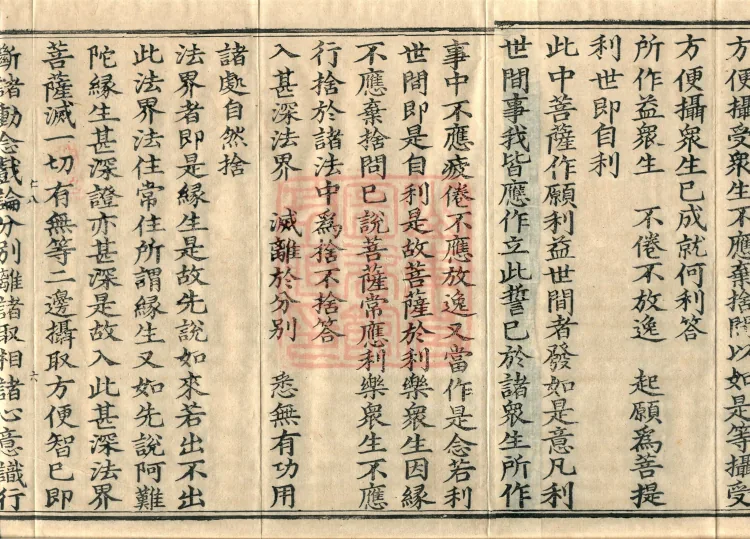 方便攝受衆生不應棄捨問以如是等攝受
方便攝衆生已成就何利答
所作益衆生　不倦不放逸　起願爲菩提
利世即自利
此中菩薩作願利益世間者發如是意凡利
世間事我皆應作立此誓已於諸衆生所作
事中不應疲倦不應放逸又當作是念若利
世間即是自利是故菩薩於利樂衆生因緣
不應棄捨問已說菩薩常應利樂衆生不應
行捨於諸法中爲捨不捨答
入甚深法界　滅離於分別　悉無有功用
諸處自然捨
法界者即是緣生是故先說如來若出不出
此法界法住常住所謂緣生又如先說阿難
陀緣生甚深證亦甚深是故入此甚深法界
菩薩滅一切有無等二邊攝取方便智已即
斷諸動念戲論分別離諸取相諸心意識行
六